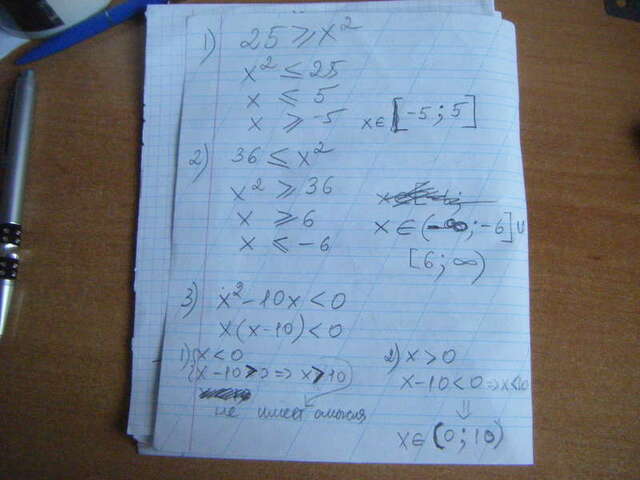 1) 25 ⩾ x²
x² ≤ 25
x ≤ 5
x ⩾ -5
x ∈ [-5; 5]
2) 36 ≤ x²
x² ⩾ 36
x ⩾ 6
x ≤ -6
x ∈ (-∞; -6] ∪
[6; ∞)
3) x² - 10x < 0
x(x - 10) < 0
1) { x < 0
x - 10 > 0 => x > 10
не имеет смысла
2) x > 0
x - 10 < 0 => x < 10
⇓
x ∈ (0; 10)